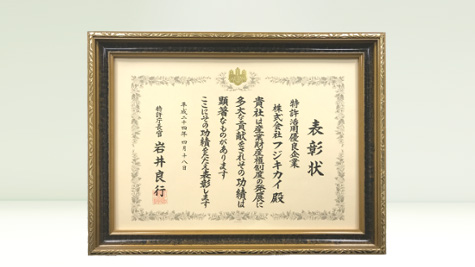 表彰状
特許活用優良企業
株式会社フジキカイ殿
貴社は産業財産権制度の発展に
多大な貢献をされその功績は
顕著なものがあります
ここにその功績をたたえ表彰します
平成二十四年四月十八日
特許庁長官 岩井良行